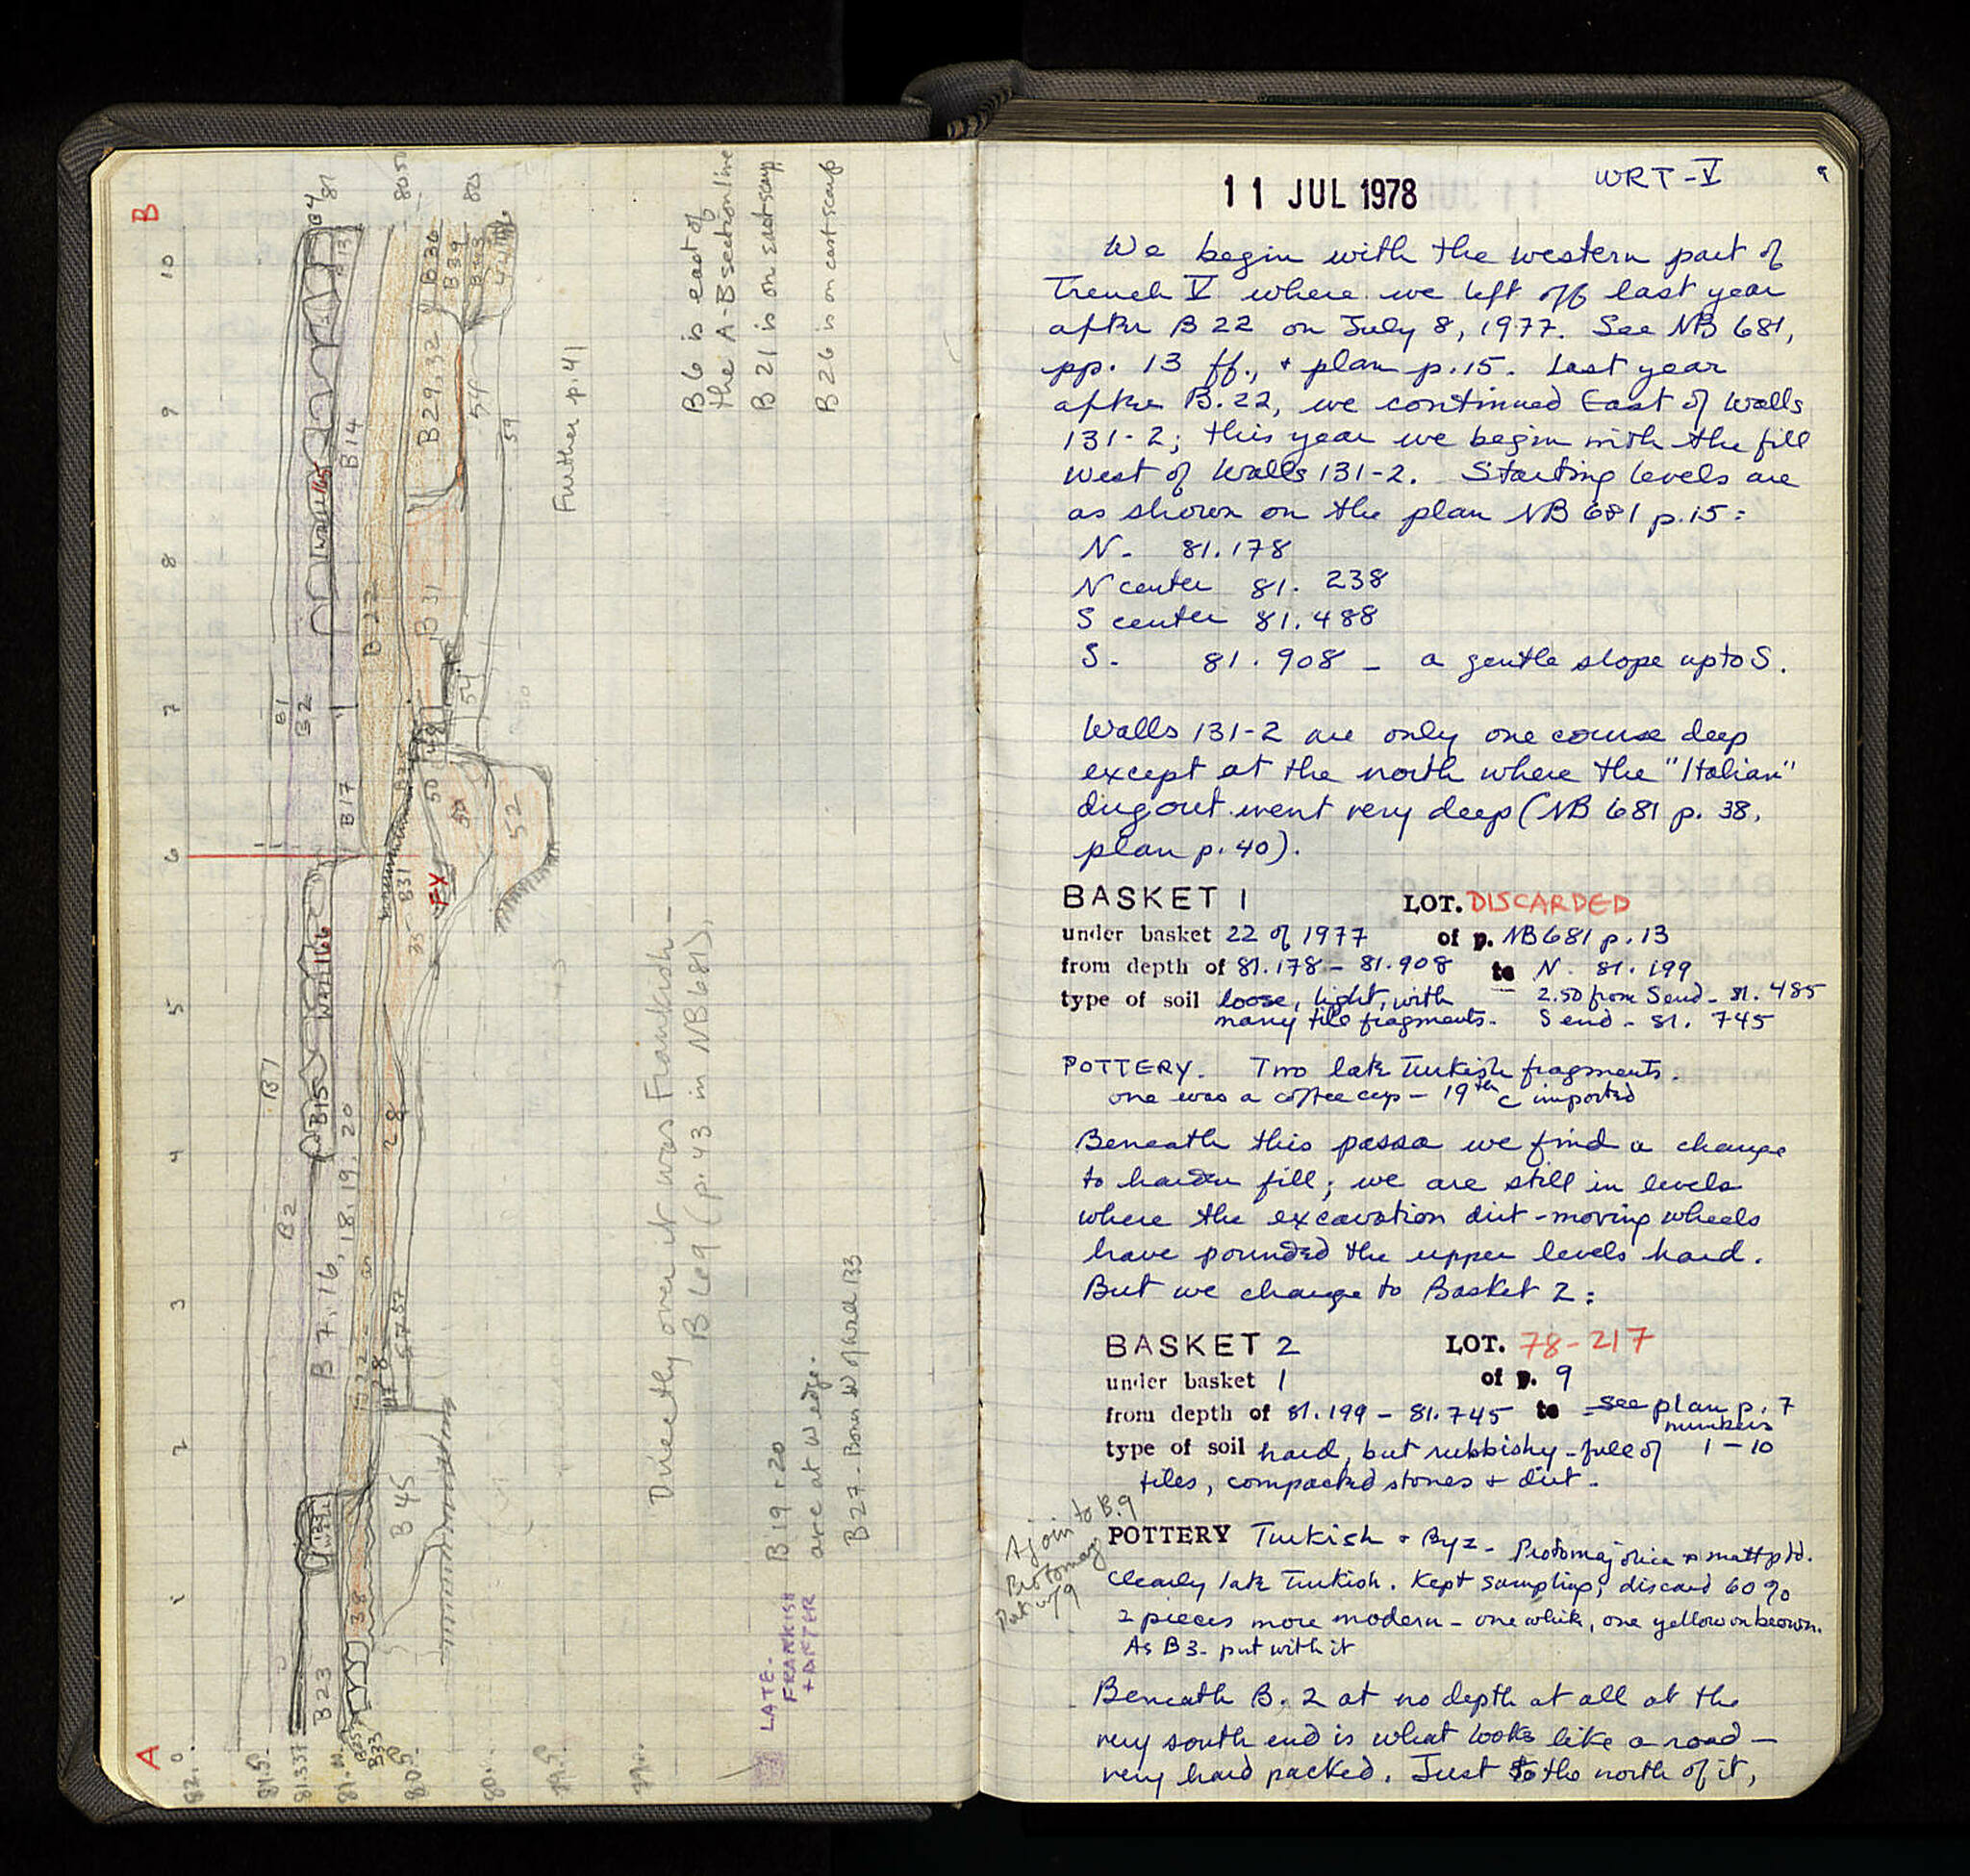 B
10
9
8
7
6
5
4
3
2
1
0
A
B4
81
80.5
B13
B36
B39
B43
44
B14
B29, 32
54
59
WALL 165
B 27
B 31
54
B1
B2
B17
48
50
52
B31
FX
35
WALL 166
B1
B15
28
B2
B 7, 16, 18, 19, 20
28
57
B 45
38
B23
B33
82.
81.5
81.337
80.5
80.
79.5
79.
Further p. 41
B 6 is east of
the A-B section line
B 21 is on east scarp
B 26 is on east scarp
Directly over it was Frankish -
B 69 (p. 43 in NB 681).
B 19 + 20
are at W edge.
B 27 - Bones W of Wall 133
LATE -
FRANKISH
+ AFTER
11 JUL 1978
WRT-V
9
We begin with the western part of
Trench V where we left off last year
after B 22 on July 8, 1977. See NB 681,
pp. 13 ff., + plan p. 15. Last year
after B. 22, we continued East of Walls
131-2; this year we begin with the fill
West of Walls 131-2. Starting levels are
as shown on the plan NB 681 p. 15:
N - 81.178
N center 81. 238
S center 81.488
S - 81.908 - a gentle slope up to S.
Walls 131-2 are only one course deep
except at the north where the "Italian"
dugout went very deep (NB 681 p. 38,
plan p. 40).
BASKET 1 LOT. DISCARDED
under basket 22 of 1977 of p. NB 681 p. 13
from depth of 81.178 - 81.908 to N. 81.199
type of soil loose, light, with 2.50 from S end - 81.485
many tile fragments - S end - 81.745
POTTERY. Two late Turkish fragments.
one was a coffee cup - 19th c imported
Beneath this passa we find a change
to harder fill; we are still in levels
where the excavation dirt-moving wheels
have pounded the upper levels hard.
But we change to Basket 2:
BASKET 2 LOT. 78-217
under basket 1 of p. 9
from depth of 81.199 - 81.745 to see plan p. 7
numbers
type of soil hard, but rubbishy - full of 1 - 10
tiles, compacted stones + dirt.
A join to B.9
Protomaj
Put w/9
POTTERY Turkish + Byz - Protomajolica + matt ptd.
Clearly late Turkish. Kept sampling; discard 60 %
2 pieces more modern - one white, one yellow on brown.
As B3 - put with it
Beneath B. 2 at no depth at all at the
very south end is what looks like a road -
very hard packed. Just to the north of it,